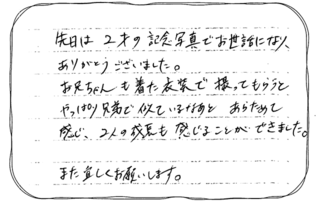 先日は2才の記念写真でお世話になり、
ありがとうございました。
お兄ちゃんも着た衣装で撮ってもらうと
やっぱり兄弟で似ているなあと あらためて
感じ、2人の成長も感じることができました。
また宜しくお願いします。